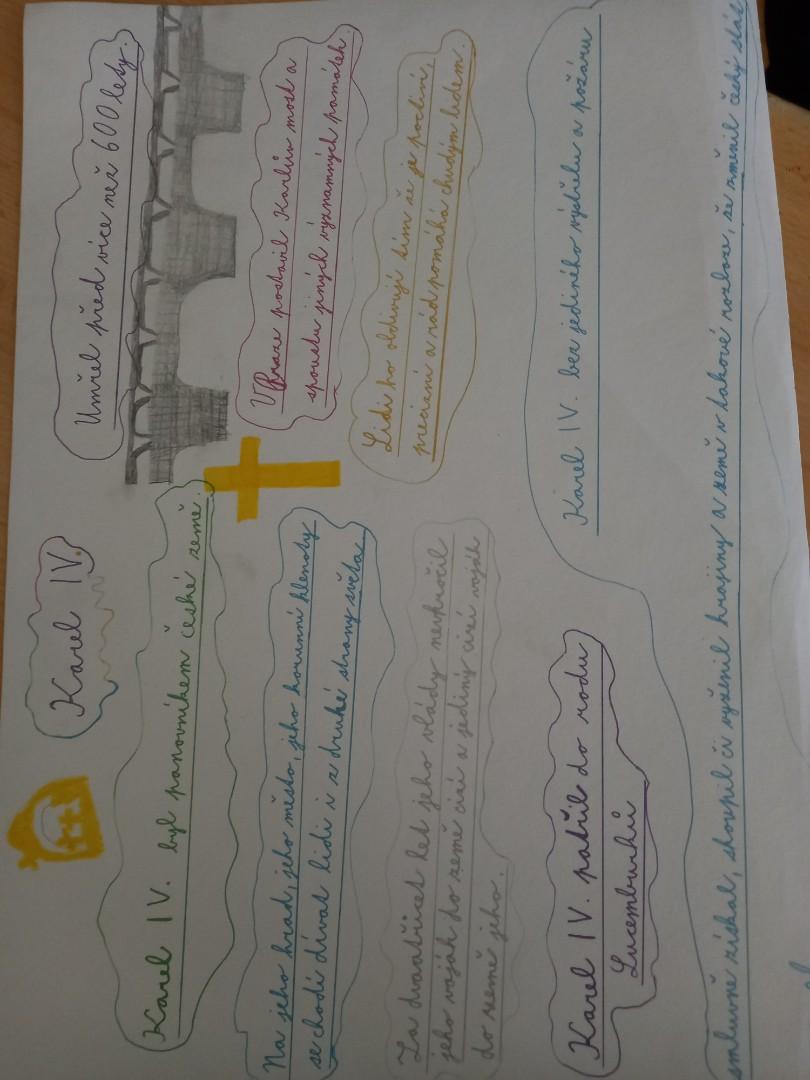 Karel IV.
Umřel před více než 600 lety.
Karel IV. byl panovníkem české země.
V Praze postavil Karlův most a
spoustu jiných významných památek.
Na jeho hrad, jeho město, jeho korunní klenoty
se chodí dívat lidi i z druhé strany světa.
Lidi ho obdivují tím že je poctiví,
precizní a rád pomáhá chudým lidem.
Za dvaatřicet let jeho vlády nevkročil
jeho voják do země cizí a jediný cizí voják
do země jeho.
Karel IV. patřil do rodu
Lucemburků
Karel IV. bez jediného výstřelu a požáru
smluvně získal, skoupil či vyženil krajiny a země v takové rozloze, že změnil český stát